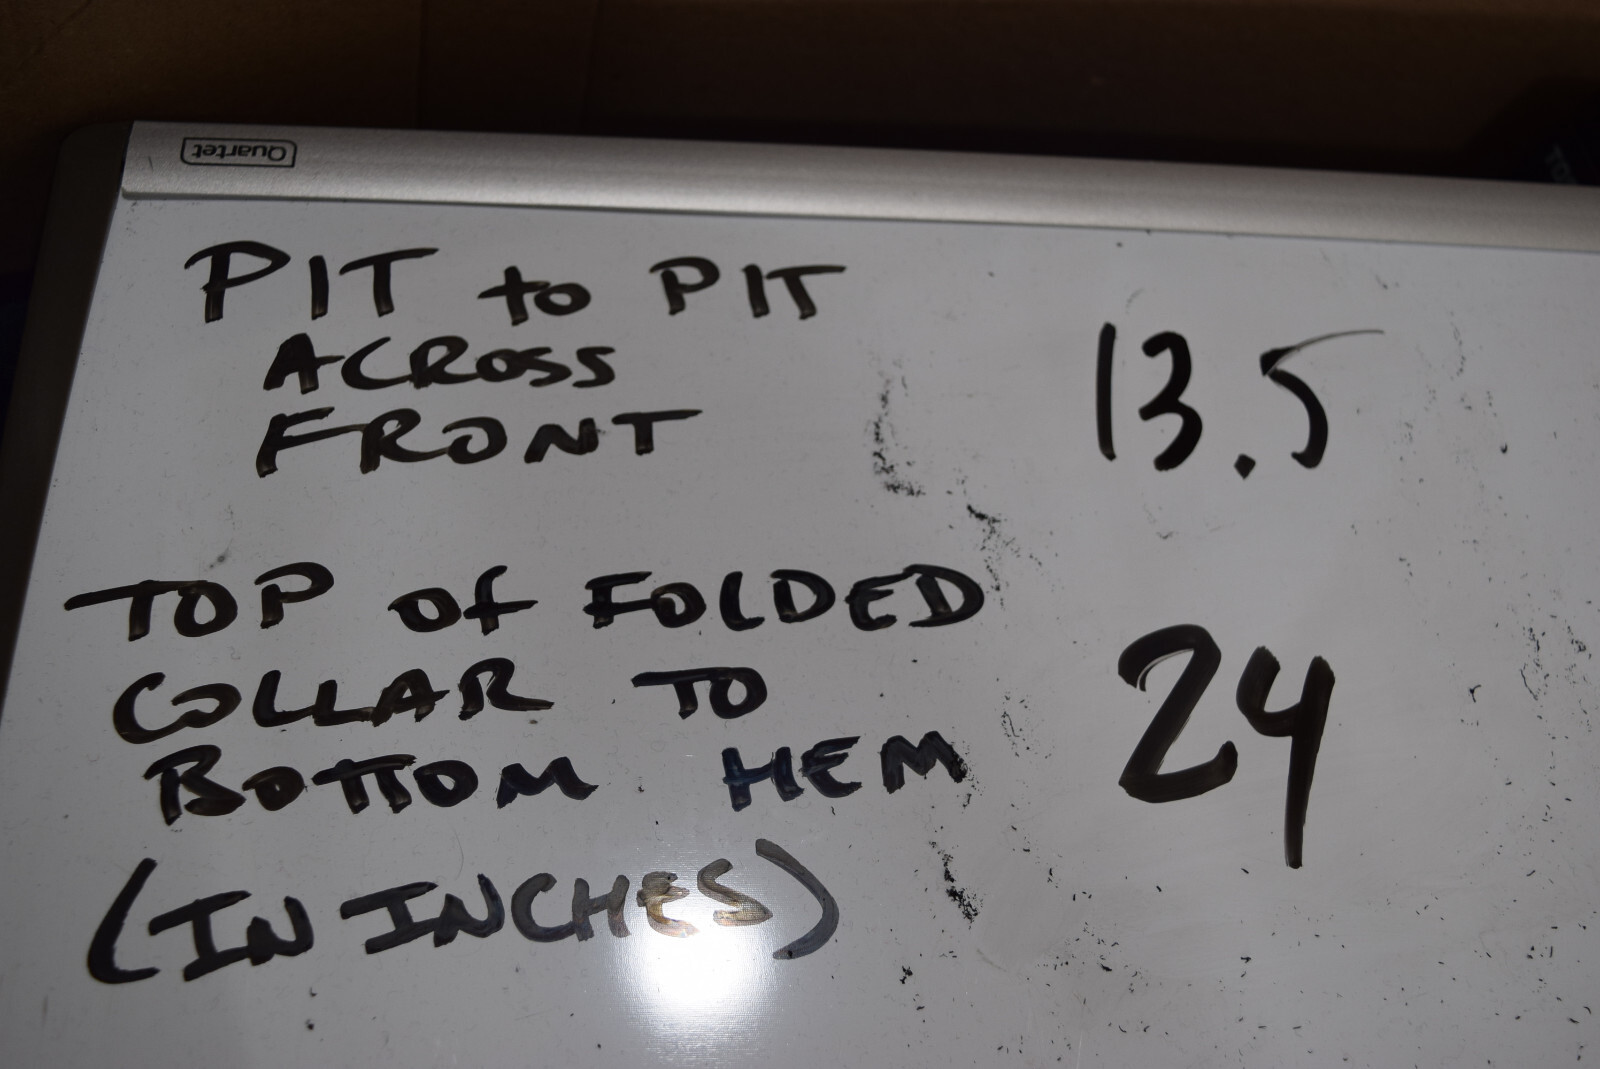 Quartet
PIT to PIT
ACROSS
FRONT
13.5
TOP Of FOLDED
COLLAR TO
BOTTOM HEM
24
(IN INCHES)